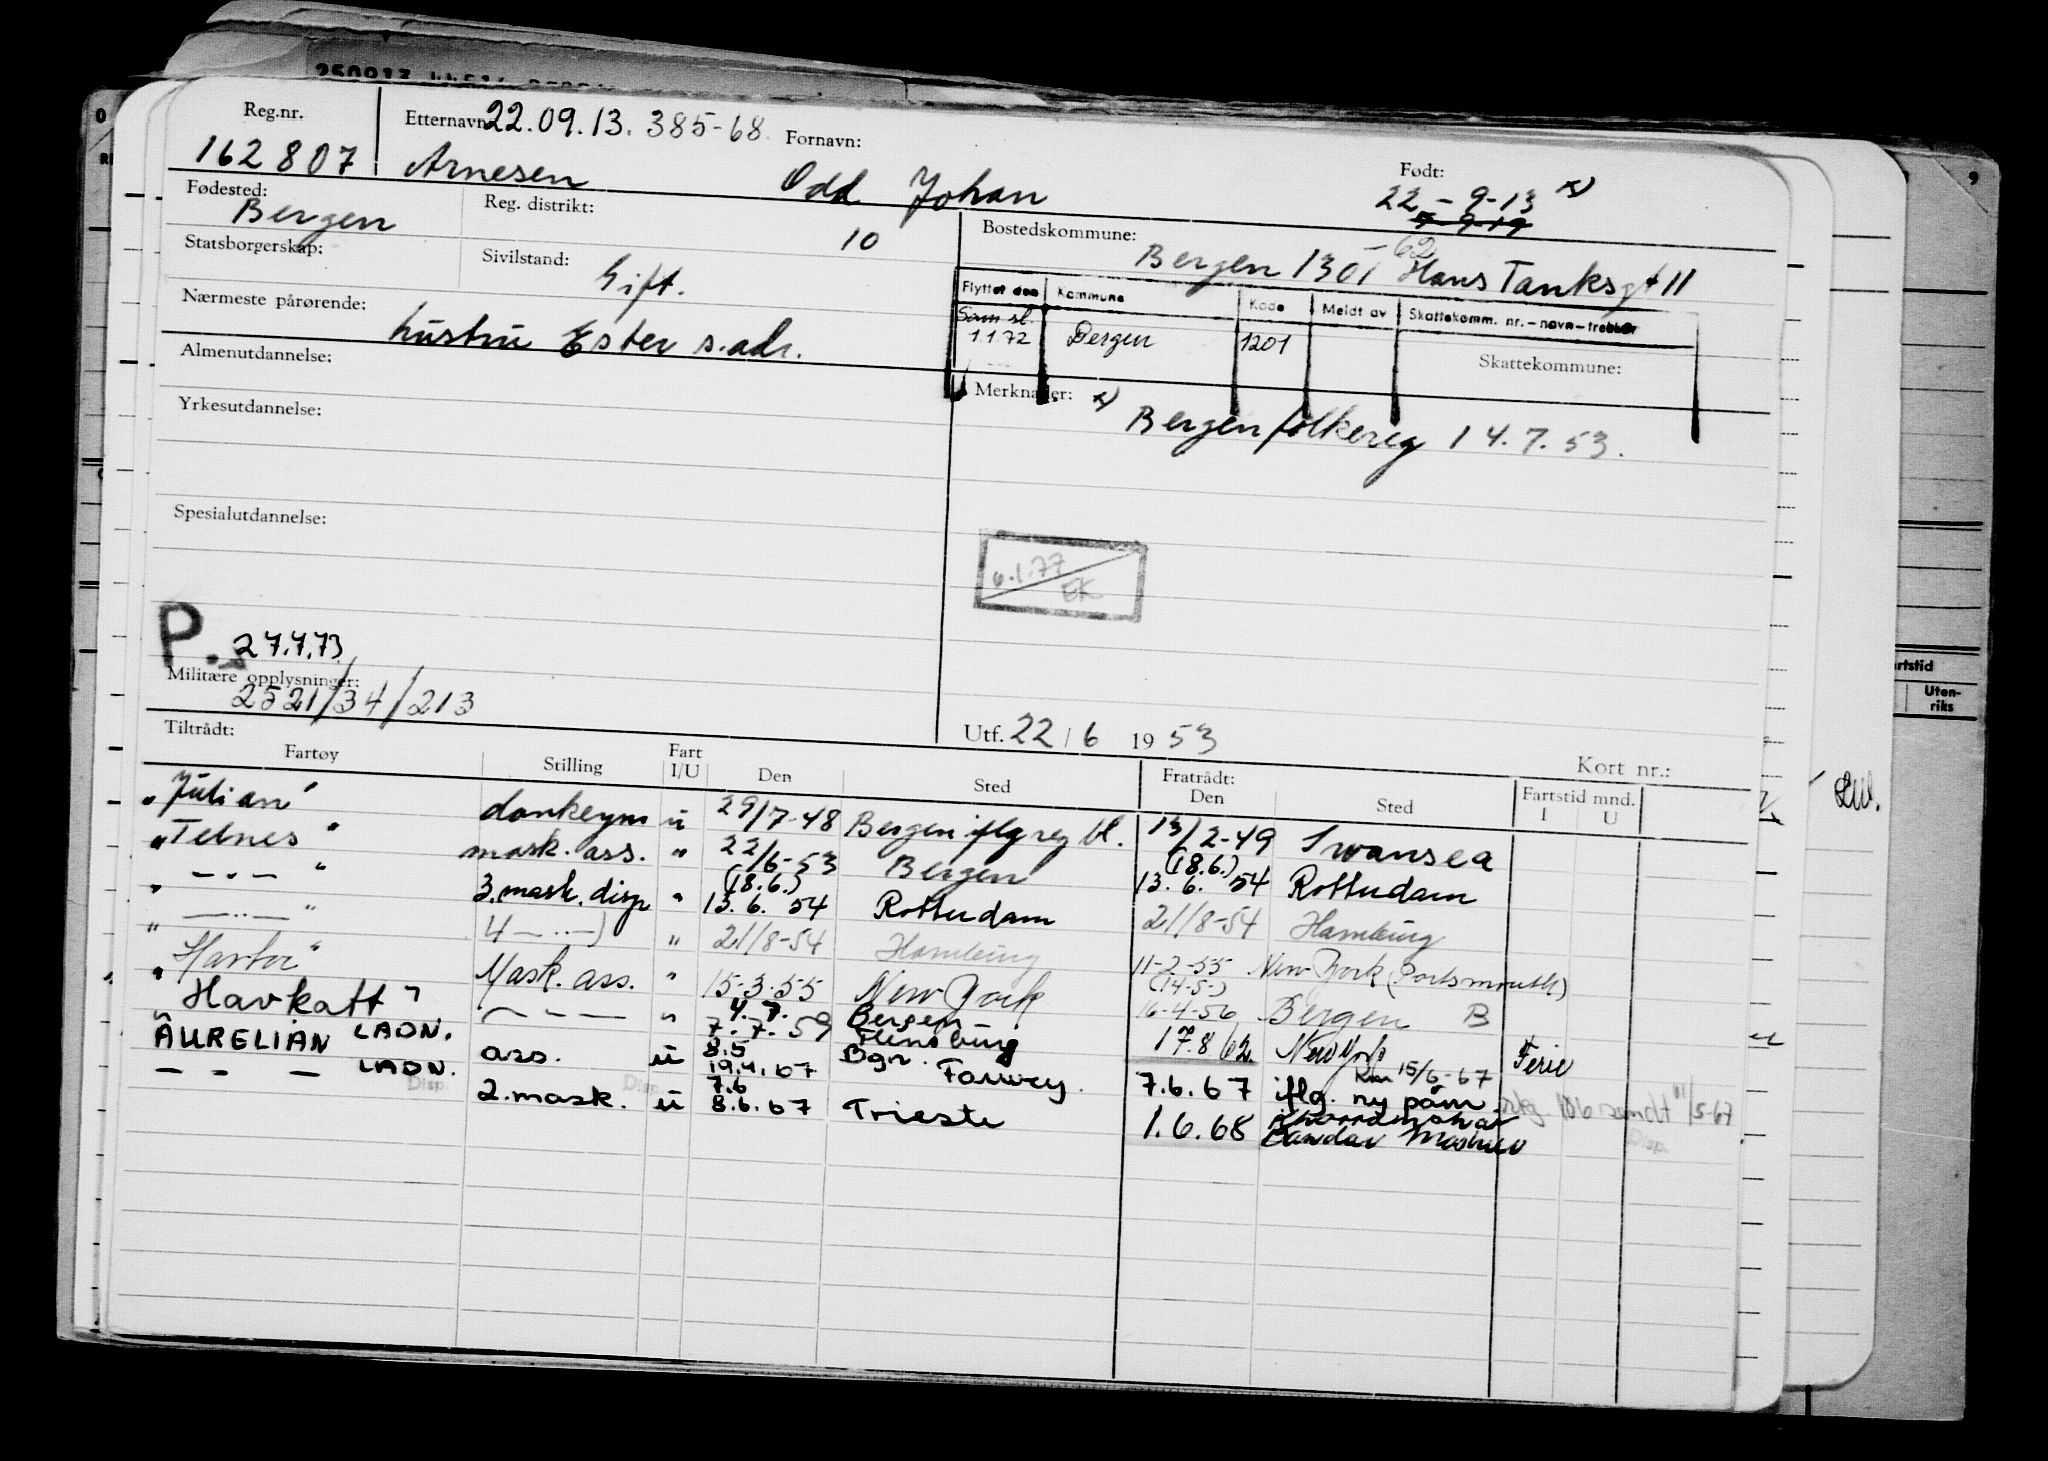 Reg.nr.
162807
Etternavn: 22.09.13. 385-68.
Fornavn:
Arnesen Odd Johan
Født:
22-9-13 x)
Fødested:
Bergen
Reg. distrikt:
10
Statsborgerskap:
Sivilstand:
Gift.
Bostedskommune:
Bergen 1301 -62 Hans Tanksgt 11
Nærmeste pårørende:
hustru Ester s.adr.
Flyttet den Kommune Kode Meldt av Skattekomm. nr.-navn-trekker
Sam sl.
1.1.72 Bergen 1201
Skattekommune:
Almenutdannelse:
Merknader: x) Bergen folkereg 14.7.53.
Yrkesutdannelse:
Spesialutdannelse:
6.1.77
EK
P. 27.7.73
Militære opplysninger:
2521/34/213
Utf. 22/6 1953
Kort nr.:
Tiltrådt:
Fartøy Stilling Fart I/U Den Sted Fratrådt: Den Sted Fartstid mnd. I U
"Julian" donkeym u 29/7-48 Bergen iflg reg bl. 13/2-49 Swansea
"Telnes" mask. ass. " 22/6-53 Bergen (18.6.) 13.6. 54 Rotterdam
" -.- " 3.mask.disp " (18.6.) 13.6. 54 Rotterdam 21/8-54 Hamburg
" -..- " 4 -..-) " 21/8-54 Hamburg 11-2-55 New York (Portsmouth)
Mask. ass. " 15-3-55 New York (14-5-) 16-4-56 Bergen B
"Havkatt" - - - " 4.7. 7.7.59 Bergen Flensburg 17.8.62 New York Ferie
AURELIAN LADN. ass. u 8.5 19.4.67 Bgn. Fawley. 7.6.67 iflg. ny påm. 15/6-67
- - - LADN. 2.mask. u 7.6 8.6.67 Trieste 1.6.68 Bandar Mashur
Fartstid
Uten-
riks